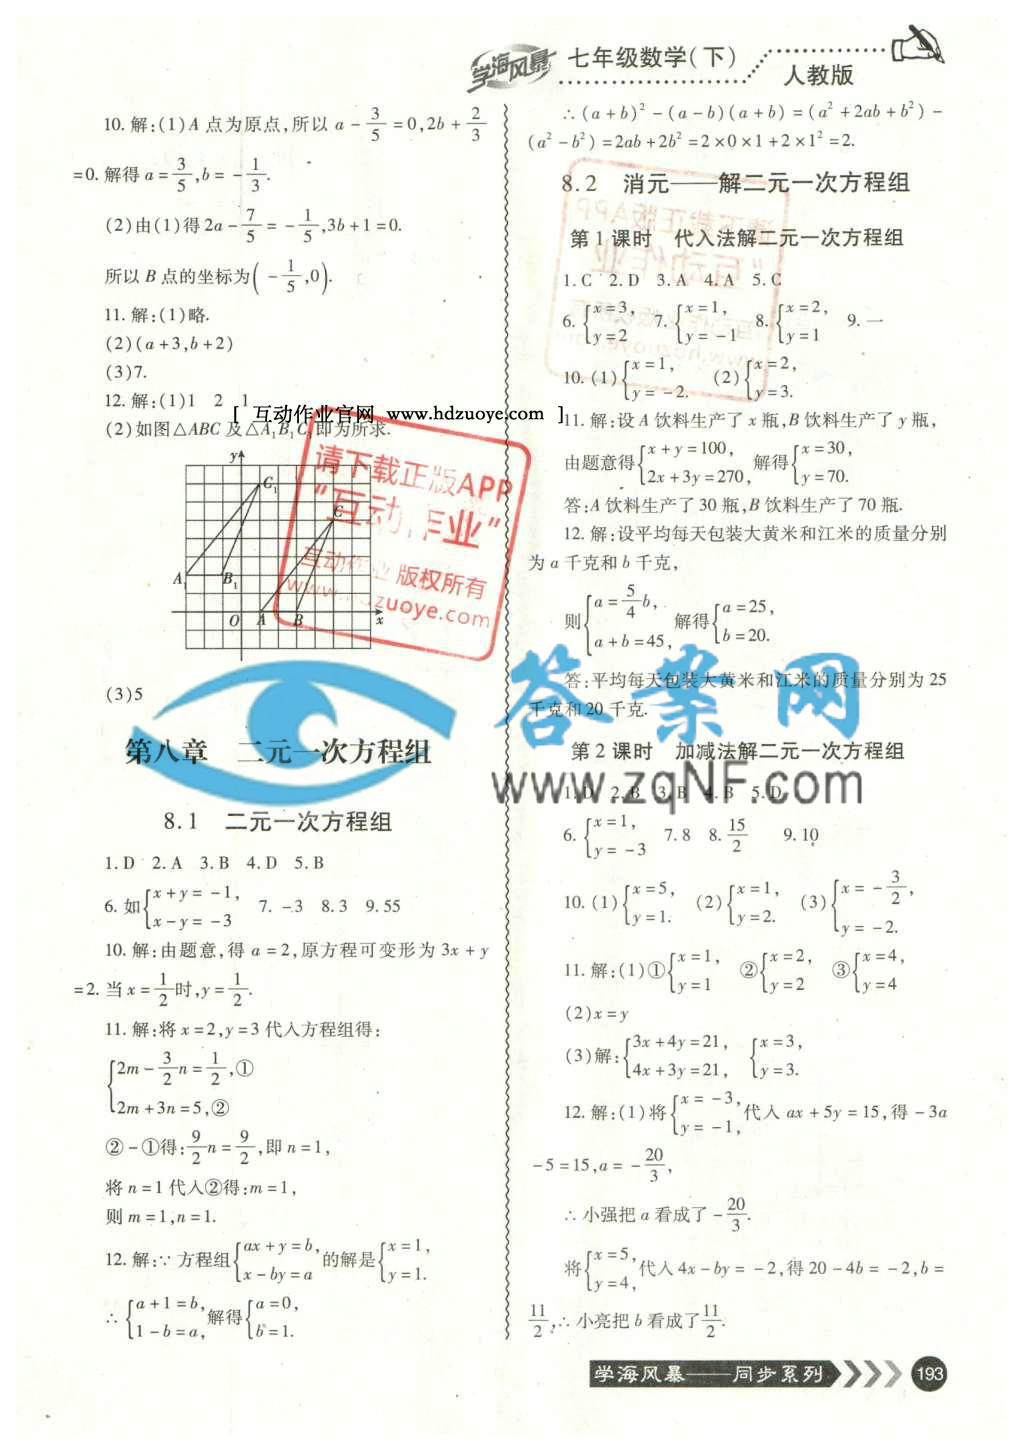 学海风暴 七年级数学(下) 人教版
10. 解:(1)A 点为原点,所以 a - 3/5 = 0, 2b + 2/3
= 0. 解得 a = 3/5, b = - 1/3.
(2)由(1)得 2a - 7/5 = - 1/5, 3b + 1 = 0.
所以 B 点的坐标为( - 1/5, 0).
11. 解:(1)略.
(2)(a+3, b+2)
(3)7.
12. 解:(1)1 2 1
[ 互动作业官网 www.hdzuoye.com ]
(2)如图△ABC 及△A₁B₁C₁即为所求.
y
C₁
C
A₁ B₁
O A B x
请下载正版APP
“互动作业”
互动作业 版权所有
www.hdzuoye.com
(3)5
第八章 二元一次方程组
8.1 二元一次方程组
1. D 2. A 3. B 4. D 5. B
6. 如{x + y = -1, x - y = -3 7. -3 8. 3 9. 55
10. 解:由题意,得 a = 2,原方程可变形为 3x + y
= 2. 当 x = 1/2 时, y = 1/2.
11. 解:将 x = 2, y = 3 代入方程组得:
{2m - 3/2 n = 1/2, ①
2m + 3n = 5, ②
② - ①得: 9/2 n = 9/2, 即 n = 1,
将 n = 1 代入②得: m = 1,
则 m = 1, n = 1.
12. 解:∵方程组{ax + y = b, x - by = a 的解是{x = 1, y = 1.
∴{a + 1 = b, 1 - b = a, 解得{a = 0, b = 1.
∴(a+b)² - (a-b)(a+b) = (a² + 2ab + b²) -
(a² - b²) = 2ab + 2b² = 2×0×1 + 2×1² = 2.
8.2 消元——解二元一次方程组
第 1 课时 代入法解二元一次方程组
1. C 2. D 3. A 4. A 5. C
6. {x = 3, y = 2 7. {x = 1, y = -1 8. {x = 2, y = 1 9. 一
10. (1){x = 1, y = -2. (2){x = 2, y = 3.
11. 解:设 A 饮料生产了 x 瓶, B 饮料生产了 y 瓶,
由题意得{x + y = 100, 2x + 3y = 270, 解得{x = 30, y = 70.
答:A 饮料生产了 30 瓶, B 饮料生产了 70 瓶.
12. 解:设平均每天包装大黄米和江米的质量分别
为 a 千克和 b 千克,
则{a = 5/4 b, a + b = 45, 解得{a = 25, b = 20.
答:平均每天包装大黄米和江米的质量分别为 25
千克和 20 千克.
答案网
www.zqNF.com
第 2 课时 加减法解二元一次方程组
1. D 2. B 3. B 4. B 5. D
6. {x = 1, y = -3 7. 8 8. 15/2 9. 10
10. (1){x = 5, y = 1. (2){x = 1, y = 2. (3){x = - 3/2, y = -2.
11. 解:(1)①{x = 1, y = 1 ②{x = 2, y = 2 ③{x = 4, y = 4
(2)x = y
(3)解:{3x + 4y = 21, 4x + 3y = 21, {x = 3, y = 3.
12. 解:(1)将{x = -3, y = -1, 代入 ax + 5y = 15, 得 -3a
-5 = 15, a = - 20/3,
∴小强把 a 看成了 - 20/3.
将{x = 5, y = 4, 代入 4x - by = -2, 得 20 - 4b = -2, b =
11/2, ∴小亮把 b 看成了 11/2.
学海风暴——同步系列 193